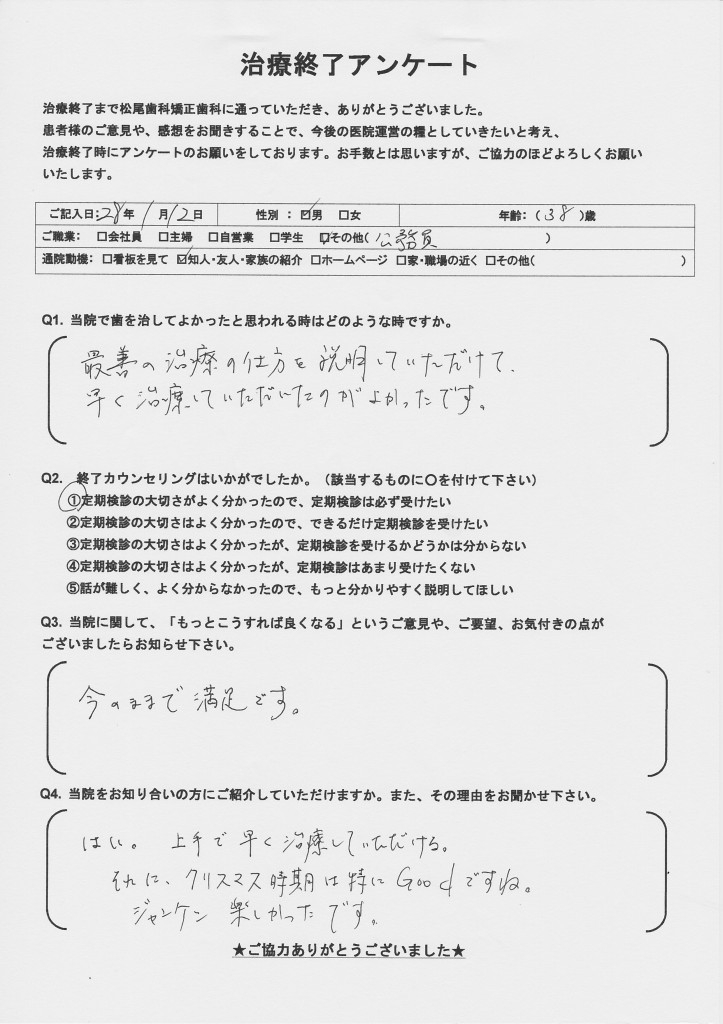 治療終了アンケート
治療終了まで松尾歯科矯正歯科に通っていただき、ありがとうございました。
患者様のご意見や、感想をお聞きすることで、今後の医院運営の糧としていきたいと考え、
治療終了時にアンケートのお願いをしております。お手数とは思いますが、ご協力のほどよろしくお願い
いたします。
ご記入日:28年 1月12日 性別 : ☑男 □女 年齢:(38)歳
ご職業: □会社員 □主婦 □自営業 □学生 ☑その他(公務員)
通院動機: □看板を見て ☑知人・友人・家族の紹介 □ホームページ □家・職場の近く □その他( )
Q1. 当院で歯を治してよかったと思われる時はどのような時ですか。
最善の治療の仕方を説明していただけて、
早く治療していただいたのがよかったです。
Q2. 終了カウンセリングはいかがでしたか。(該当するものに〇を付けて下さい)
①定期検診の大切さがよく分かったので、定期検診は必ず受けたい
②定期検診の大切さはよく分かったので、できるだけ定期検診を受けたい
③定期検診の大切さはよく分かったが、定期検診を受けるかどうかは分からない
④定期検診の大切さはよく分かったが、定期検診はあまり受けたくない
⑤話が難しく、よく分からなかったので、もっと分かりやすく説明してほしい
Q3. 当院に関して、「もっとこうすれば良くなる」というご意見や、ご要望、お気付きの点が
ございましたらお知らせ下さい。
今のままで満足です。
Q4. 当院をお知り合いの方にご紹介していただけますか。また、その理由をお聞かせ下さい。
はい。 上手で早く治療していただける。
それに、クリスマス時期は特にGoodですね。
ジャンケン楽しかったです。
★ご協力ありがとうございました★